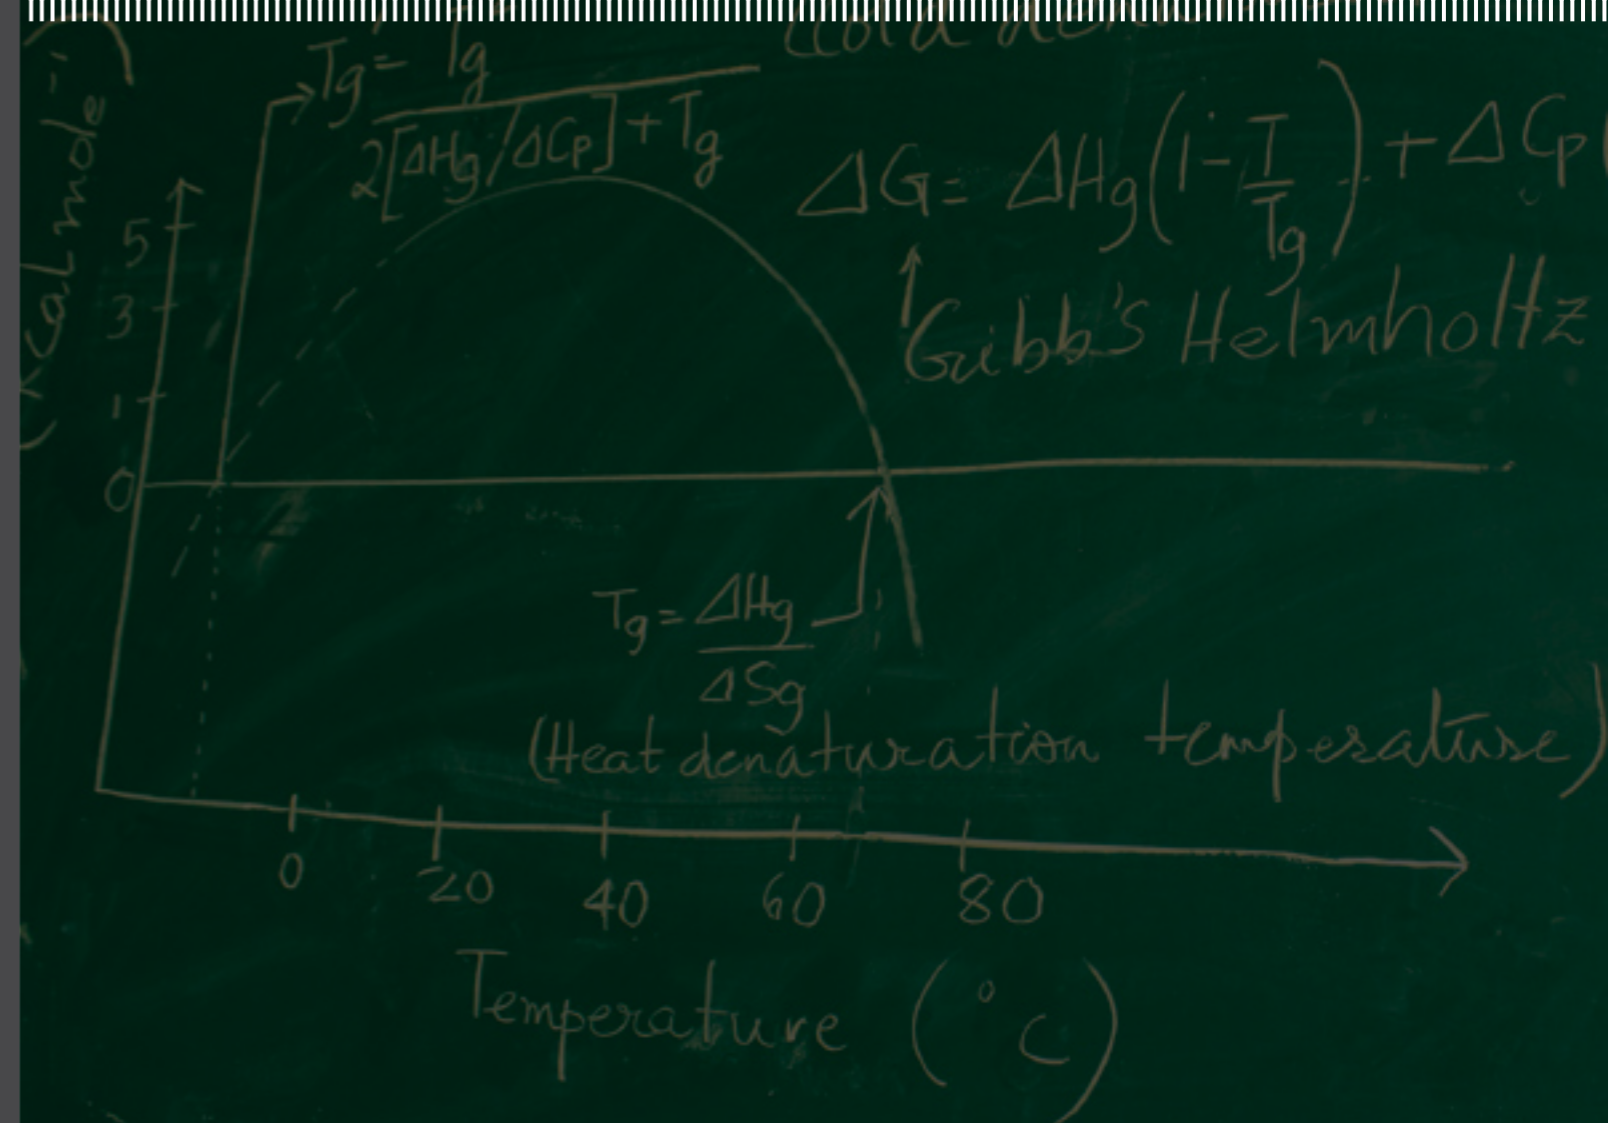 Tg' = Tg / 2[ΔHg/ΔCp] + Tg
ΔG = ΔHg(1 - T/Tg) + ΔCp(
Gibb's Helmholtz
5
3
1
0
Tg = ΔHg / ΔSg
(Heat denaturation temperature)
0 20 40 60 80
Temperature (°C)